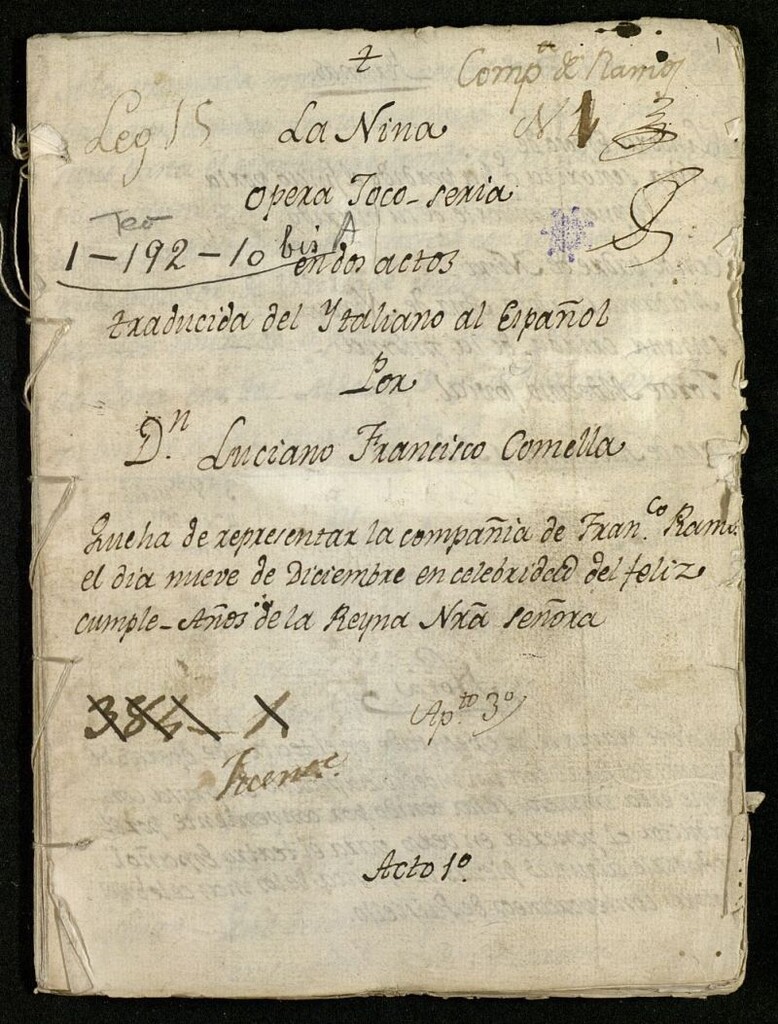 +
Comp.ª de Ramos
1
Leg 15
La Nina
N. 1
Opera Joco-seria
Tea
1-192-10 bis A
en dos actos
traducida del Ytaliano al Español
Por
D.n Luciano Francisco Comella
Que ha de representar la compañia de Fran.co Ramos
el dia nueve de Diciembre en celebridad del feliz
cumple-Años de la Reyna Nrã señora
Ap.to 3º
Acto 1º